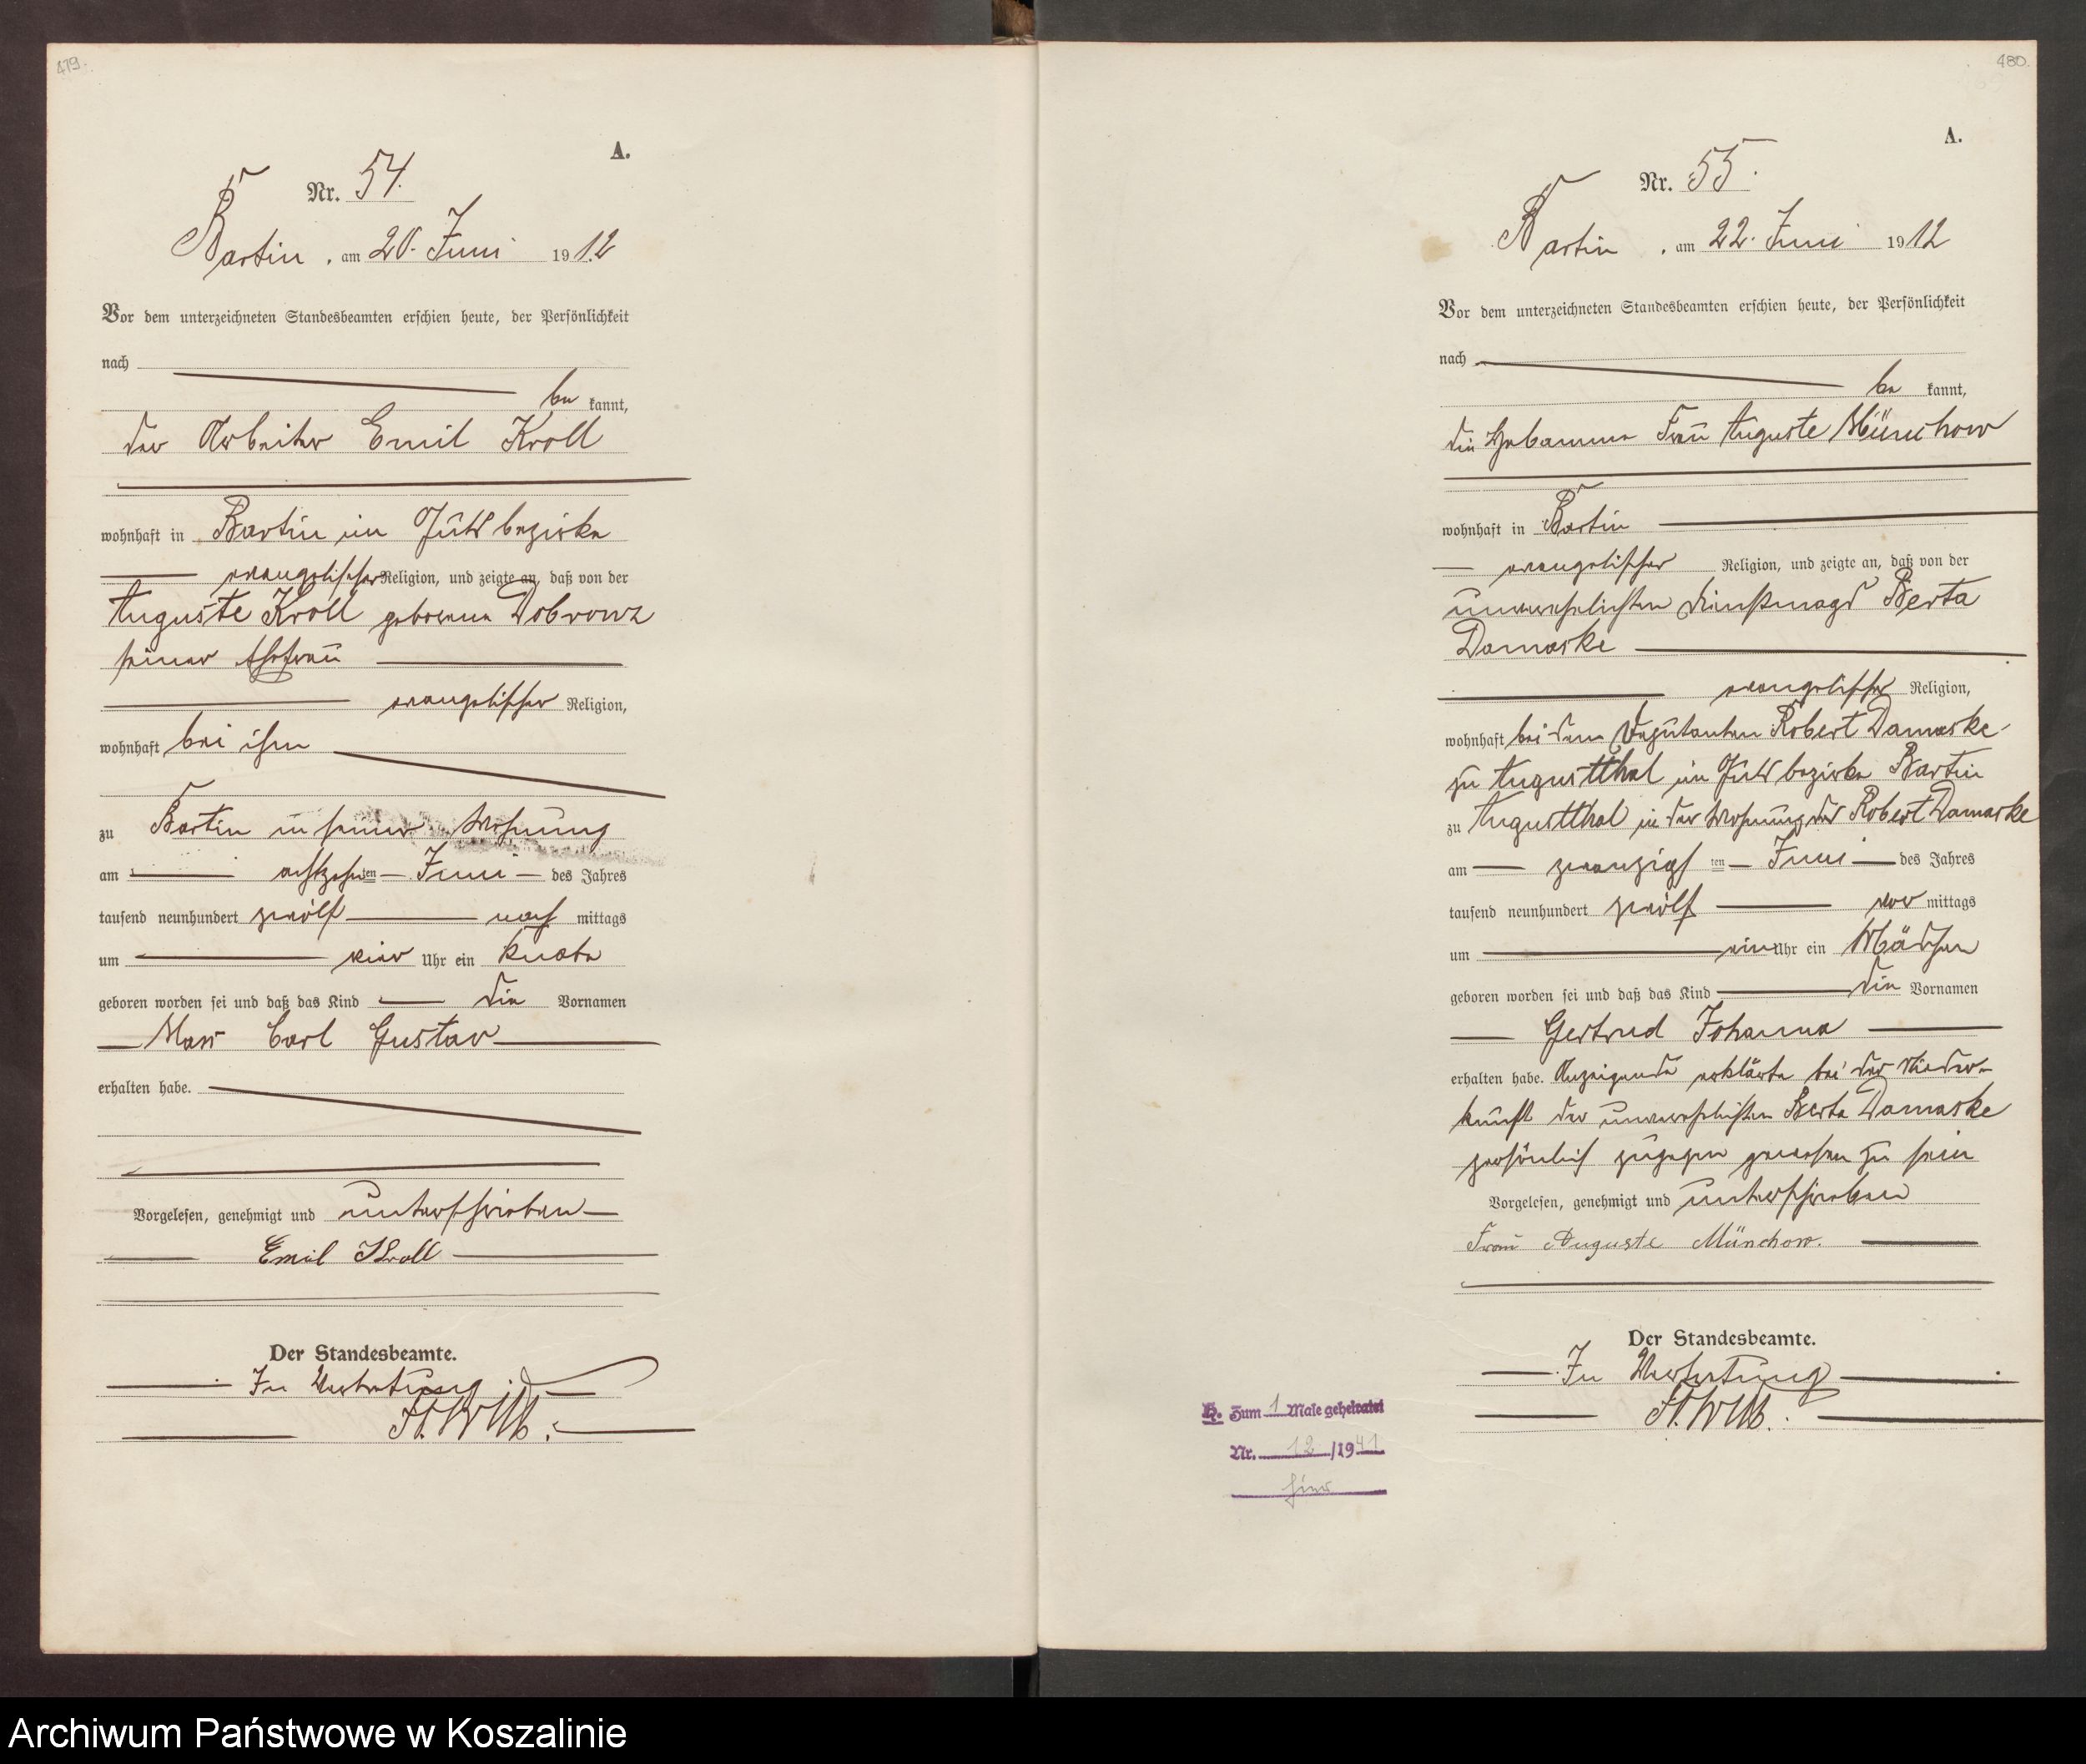 479.
A.
Nr. 54.
Bartin, am 20. Juni 1912
Vor dem unterzeichneten Standesbeamten erschien heute, der Persönlichkeit
nach
be kannt,
der Arbeiter Emil Kroll
wohnhaft in Bartin im Gutsbezirke
evangelischer Religion, und zeigte an, daß von der
Auguste Kroll geborene Dobronz
seiner Ehefrau
evangelischer Religion,
wohnhaft bei ihm
zu Bartin in seiner Wohnung
am achtzehnten Juni des Jahres
tausend neunhundert zwölf nach mittags
um vier Uhr ein Knabe
geboren worden sei und daß das Kind die Vornamen
Max Carl Gustav
erhalten habe.
Vorgelesen, genehmigt und unterschrieben
Emil Kroll
Der Standesbeamte.
In Vertretung
480.
A.
Nr. 55.
Bartin, am 22. Juni 1912
Vor dem unterzeichneten Standesbeamten erschien heute, der Persönlichkeit
nach
be kannt,
die Hebamme Frau Auguste Münchow
wohnhaft in Bartin
evangelischer Religion, und zeigte an, daß von der
unverehelichten Dienstmagd Berta
Damaske
evangelischer Religion,
wohnhaft bei dem Deputanten Robert Damaske
zu Augustthal im Gutsbezirke Bartin
zu Augustthal in der Wohnung des Robert Damaske
am zwanzigsten Juni des Jahres
tausend neunhundert zwölf vor mittags
um ein Uhr ein Mädchen
geboren worden sei und daß das Kind die Vornamen
Gertrud Johanna
erhalten habe. Anzeigende erklärte bei der Nieder-
kunft der unverehelichten Berta Damaske
persönlich zugegen gewesen zu sein
Vorgelesen, genehmigt und unterschrieben
Frau Auguste Münchow.
Der Standesbeamte.
In Vertretung
H. Zum 1 Male geheiratet
Nr. 12 /1941
hier
Archiwum Państwowe w Koszalinie